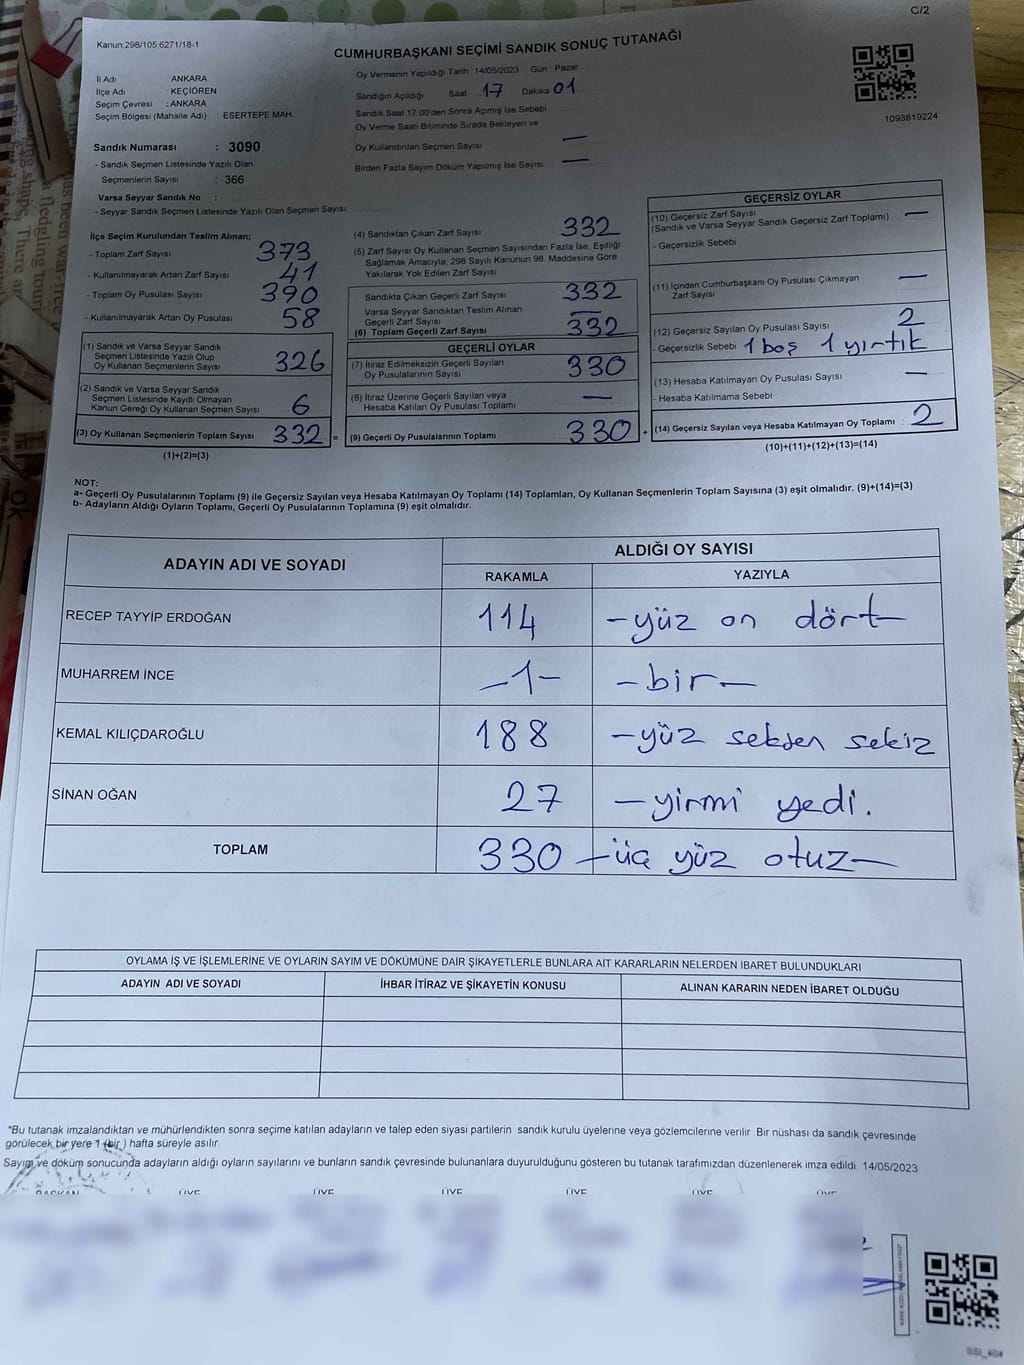 C/2
Kanun,298/105;6271/18-1
CUMHURBAŞKANI SEÇİMİ SANDIK SONUÇ TUTANAĞI
İl Adı ANKARA
İlçe Adı KEÇİÖREN
Seçim Çevresi : ANKARA
Seçim Bölgesi (Mahalle Adı) : ESERTEPE MAH.
Oy Vermenin Yapıldığı Tarih : 14/05/2023 Gün : Pazar
Sandığın Açıldığı Saat 17 Dakika 01
Sandık Saat 17:00'den Sonra Açımış İse Sebebi
Oy Verme Saati Bitiminde Sırada Bekleyen ve
Oy Kullandırılan Seçmen Sayısı —
Birden Fazla Sayım Döküm Yapılmış İse Sayısı —
1093819224
Sandık Numarası : 3090
- Sandık Seçmen Listesinde Yazılı Olan
Seçmenlerin Sayısı : 366
Varsa Seyyar Sandık No :
- Seyyar Sandık Seçmen Listesinde Yazılı Olan Seçmen Sayısı:
İlçe Seçim Kurulundan Teslim Alınan;
- Toplam Zarf Sayısı 373
- Kullanılmayarak Artan Zarf Sayısı 41
- Toplam Oy Pusulası Sayısı 390
- Kullanılmayarak Artan Oy Pusulası 58
(1) Sandık ve Varsa Seyyar Sandık
Seçmen Listesinde Yazılı Olup
Oy Kullanan Seçmenlerin Sayısı 326
(2) Sandık ve Varsa Seyyar Sandık
Seçmen Listesinde Kayıtlı Olmayan
Kanun Gereği Oy Kullanan Seçmen Sayısı 6
(3) Oy Kullanan Seçmenlerin Toplam Sayısı 332 =
(1)+(2)=(3)
(4) Sandıktan Çıkan Zarf Sayısı 332
(5) Zarf Sayısı Oy Kullanan Seçmen Sayısından Fazla İse, Eşitliği
Sağlamak Amacıyla, 298 Sayılı Kanunun 98. Maddesine Göre
Yakılarak Yok Edilen Zarf Sayısı
Sandıkta Çıkan Geçerli Zarf Sayısı 332
Varsa Seyyar Sandıktan Teslim Alınan
Geçerli Zarf Sayısı —
(6) Toplam Geçerli Zarf Sayısı 332
GEÇERLİ OYLAR
(7) İtiraz Edilmeksizin Geçerli Sayılan
Oy Pusulalarının Sayısı 330
(8) İtiraz Üzerine Geçerli Sayılan veya
Hesaba Katılan Oy Pusulası Toplamı —
(9) Geçerli Oy Pusulalarının Toplamı 330 +
GEÇERSİZ OYLAR
(10) Geçersiz Zarf Sayısı —
(Sandık ve Varsa Seyyar Sandık Geçersiz Zarf Toplamı)
- Geçersizlik Sebebi
(11) İçinden Cumhurbaşkanı Oy Pusulası Çıkmayan
Zarf Sayısı —
(12) Geçersiz Sayılan Oy Pusulası Sayısı 2
- Geçersizlik Sebebi 1 boş 1 yırtık
(13) Hesaba Katılmayan Oy Pusulası Sayısı —
- Hesaba Katılmama Sebebi
(14) Geçersiz Sayılan veya Hesaba Katılmayan Oy Toplamı : 2
(10)+(11)+(12)+(13)=(14)
NOT:
a- Geçerli Oy Pusulalarının Toplamı (9) ile Geçersiz Sayılan veya Hesaba Katılmayan Oy Toplamı (14) Toplamları, Oy Kullanan Seçmenlerin Toplam Sayısına (3) eşit olmalıdır. (9)+(14)=(3)
b- Adayların Aldığı Oyların Toplamı, Geçerli Oy Pusulalarının Toplamına (9) eşit olmalıdır.
ADAYIN ADI VE SOYADI ALDIĞI OY SAYISI
RAKAMLA YAZIYLA
RECEP TAYYİP ERDOĞAN 114 -yüz on dört-
MUHARREM İNCE -1- -bir-
KEMAL KILIÇDAROĞLU 188 -yüz seksen sekiz
SİNAN OĞAN 27 -yirmi yedi.
TOPLAM 330 -üç yüz otuz-
OYLAMA İŞ VE İŞLEMLERİNE VE OYLARIN SAYIM VE DÖKÜMÜNE DAİR ŞİKAYETLERLE BUNLARA AİT KARARLARIN NELERDEN İBARET BULUNDUKLARI
ADAYIN ADI VE SOYADI İHBAR İTİRAZ VE ŞİKAYETİN KONUSU ALINAN KARARIN NEDEN İBARET OLDUĞU
"Bu tutanak imzalandıktan ve mühürlendikten sonra seçime katılan adayların ve talep eden siyasi partilerin sandık kurulu üyelerine veya gözlemcilerine verilir. Bir nüshası da sandık çevresinde
görülecek bir yere 1 (bir) hafta süreyle asılır.
Sayım ve döküm sonucunda adayların aldığı oyların sayılarını ve bunların sandık çevresinde bulunanlara duyurulduğunu gösteren bu tutanak tarafımızdan düzenlenerek imza edildi. 14/05/2023
BAŞKAN ÜYE ÜYE ÜYE ÜYE ÜYE ÜYE
SSI_404